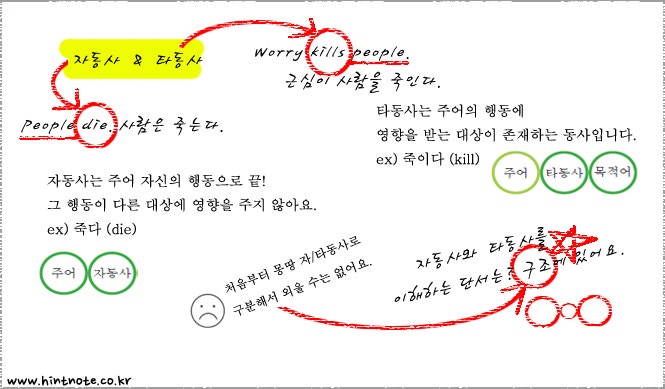 자동사 & 타동사
Worry kills people.
근심이 사람을 죽인다.
People die. 사람은 죽는다.
타동사는 주어의 행동에
영향을 받는 대상이 존재하는 동사입니다.
ex) 죽이다 (kill)
주어 타동사 목적어
자동사는 주어 자신의 행동으로 끝!
그 행동이 다른 대상에 영향을 주지 않아요.
ex) 죽다 (die)
주어 자동사
처음부터 몽땅 자/타동사로
구분해서 외울 수는 없어요.
자동사와 타동사를
이해하는 단서는? 구조에 있어요.
www.hintnote.co.kr